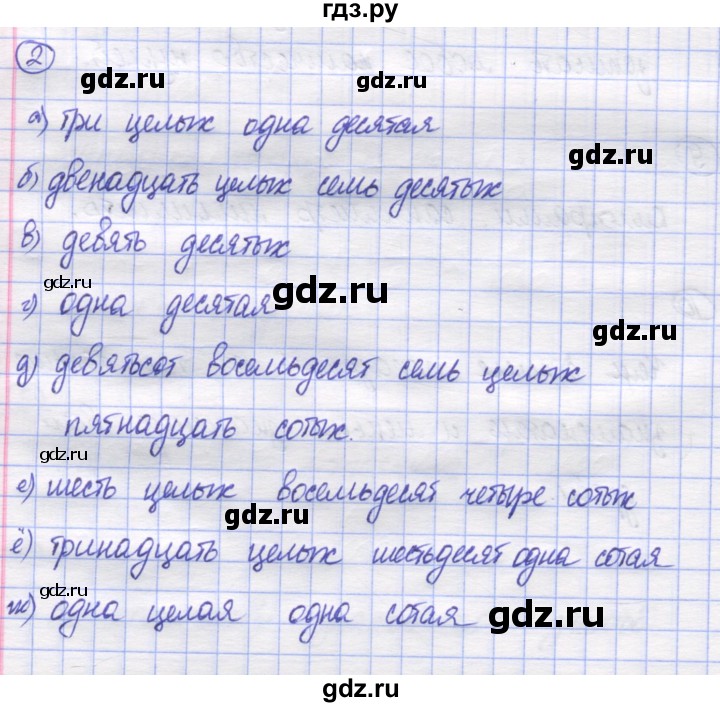 гдз.ру
2
gdz.ru
gdz.ru
а) три целых одна десятая
gdz.ru
б) двенадцать целых семь десятых
в) девять десятых
gdz.ru
gdz.ru
г) одна десятая
gdz.ru
д) девятьсот восемьдесят семь целых
пятнадцать сотых.
gdz.ru
е) шесть целых восемьдесят четыре сотых
gdz.ru
ё) тринадцать целых шестьдесят одна сотая
gdz.ru
ж) одна целая одна сотая
gdz.ru
gdz.ru